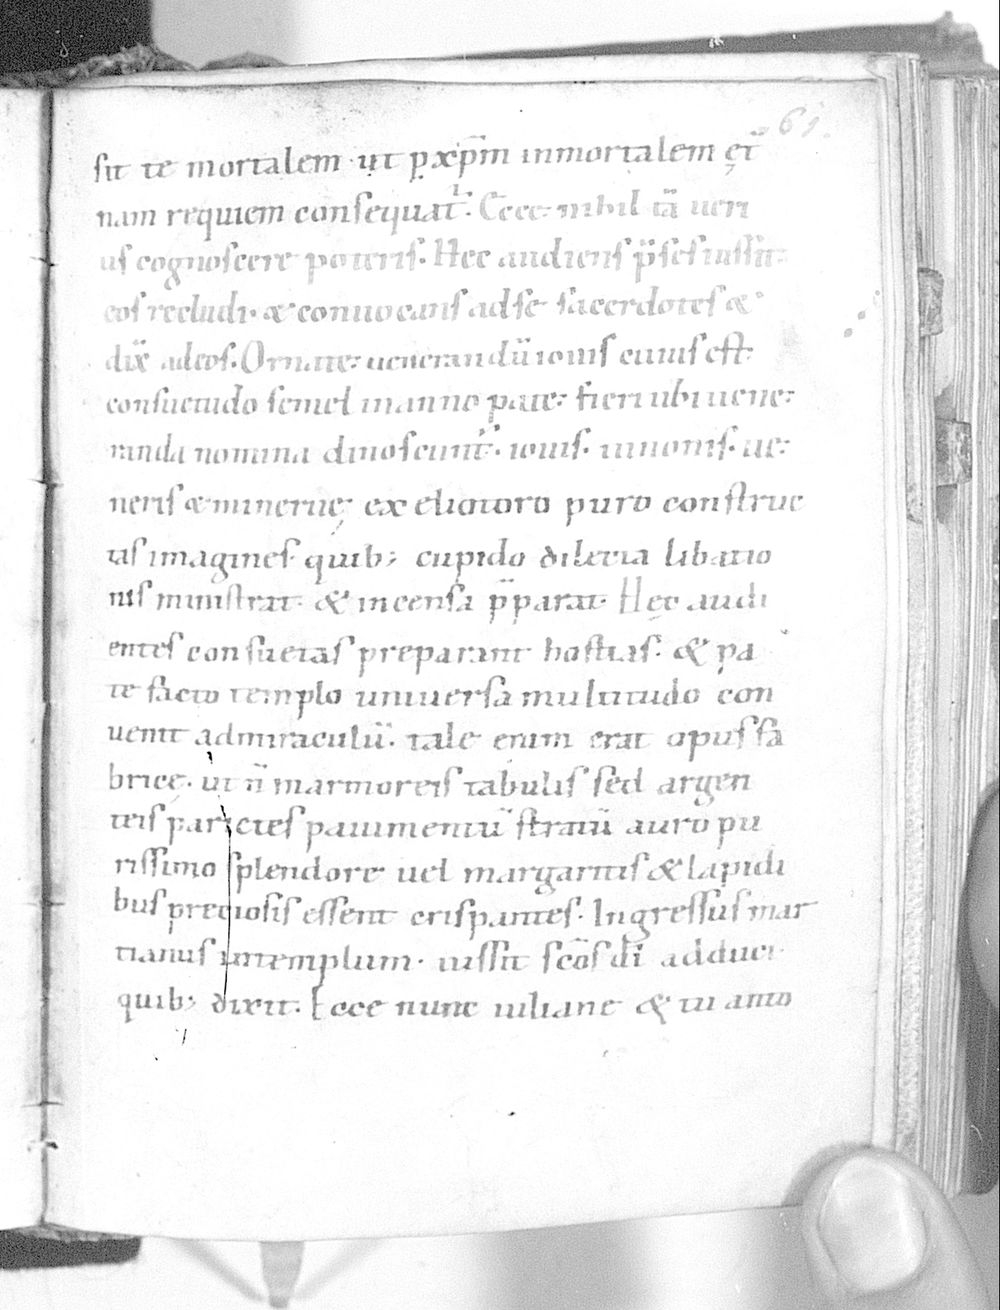 61.
sit te mortalem ut p xp̅m inmortalem et̅
nam requiem consequat᷑. Ecce nihil ta̅ ueri
us cognoscere poteris. Hec audiens p̅ses iussit
eos recludi. & conuocans ad se sacerdotes &
dix̅ ad eos. Ornate uenerandu̅ iouis cuius est
consuetudo semel in anno pate fieri ubi uene
randa nomina dinoscunt᷑. iouis. iunonis. ue
neris & mineruę ex eliotoro puro construc
tas imagines quib; cupido dilecta libatio
nis ministrat & incensa p̅parat Hęc audi
entes consuetas preparant hostias. & pa
te facto templo uniuersa multitudo con
uenit ad miraculu̅. tale enim erat opus fa
bricę. ut n̅ marmoreis tabulis sed argen
teis parietes pauimentu̅ stratu̅ auro pu
rissimo splendore uel margaritis & lapidi
bus preciosis essent crispantes. Ingressus mar
tianus in templum. iussit sc̅os di̅ adduci
quib; dixit. Ecce nunc iuliane & tu anto